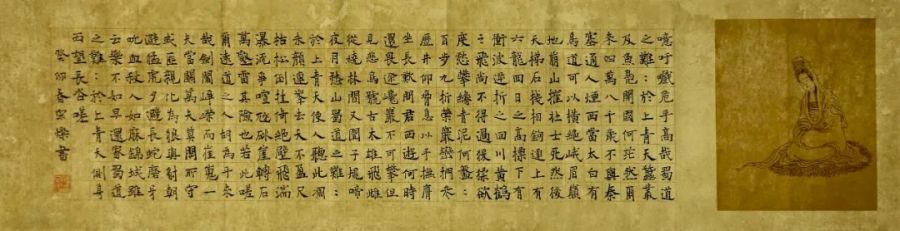 噫吁戲危乎高哉蜀道
之難:於上青天蠶叢
及魚鳧開國何茫然爾
來四萬八千歲不與秦
塞通人煙西當太白有
鳥道可以橫絕峨眉巔
地崩山摧壯士死然後
天梯石棧相鈎連上有
六龍回日之高標下有
衝波逆折之回川黃鶴
之飛尚不得過猨猱欲
度愁攀緣青泥何盤:
百步九折縈巖巒捫參
歷井仰脅息以手撫膺
坐長歎問君西遊何時
還畏途巉巖不可攀但
見悲鳥號古木雄飛雌
從繞林間又聞子規啼
夜月愁山蜀道之難:
於上青天使人聽此凋
朱顏連峯去天不盈尺
枯松倒挂倚絕壁飛湍
瀑流爭喧豗砯崖轉石
萬壑雷其險也若此嗟
爾遠道之人胡為乎來
哉劍閣崢嶸而崔嵬一
夫當關萬夫莫開所守
或匪親化為狼與豺朝
避猛虎夕避長蛇磨牙
吮血殺人如麻錦城雖
云樂不如早還家蜀道
之難:於上青天側身
西望長咨嗟
癸卯春書